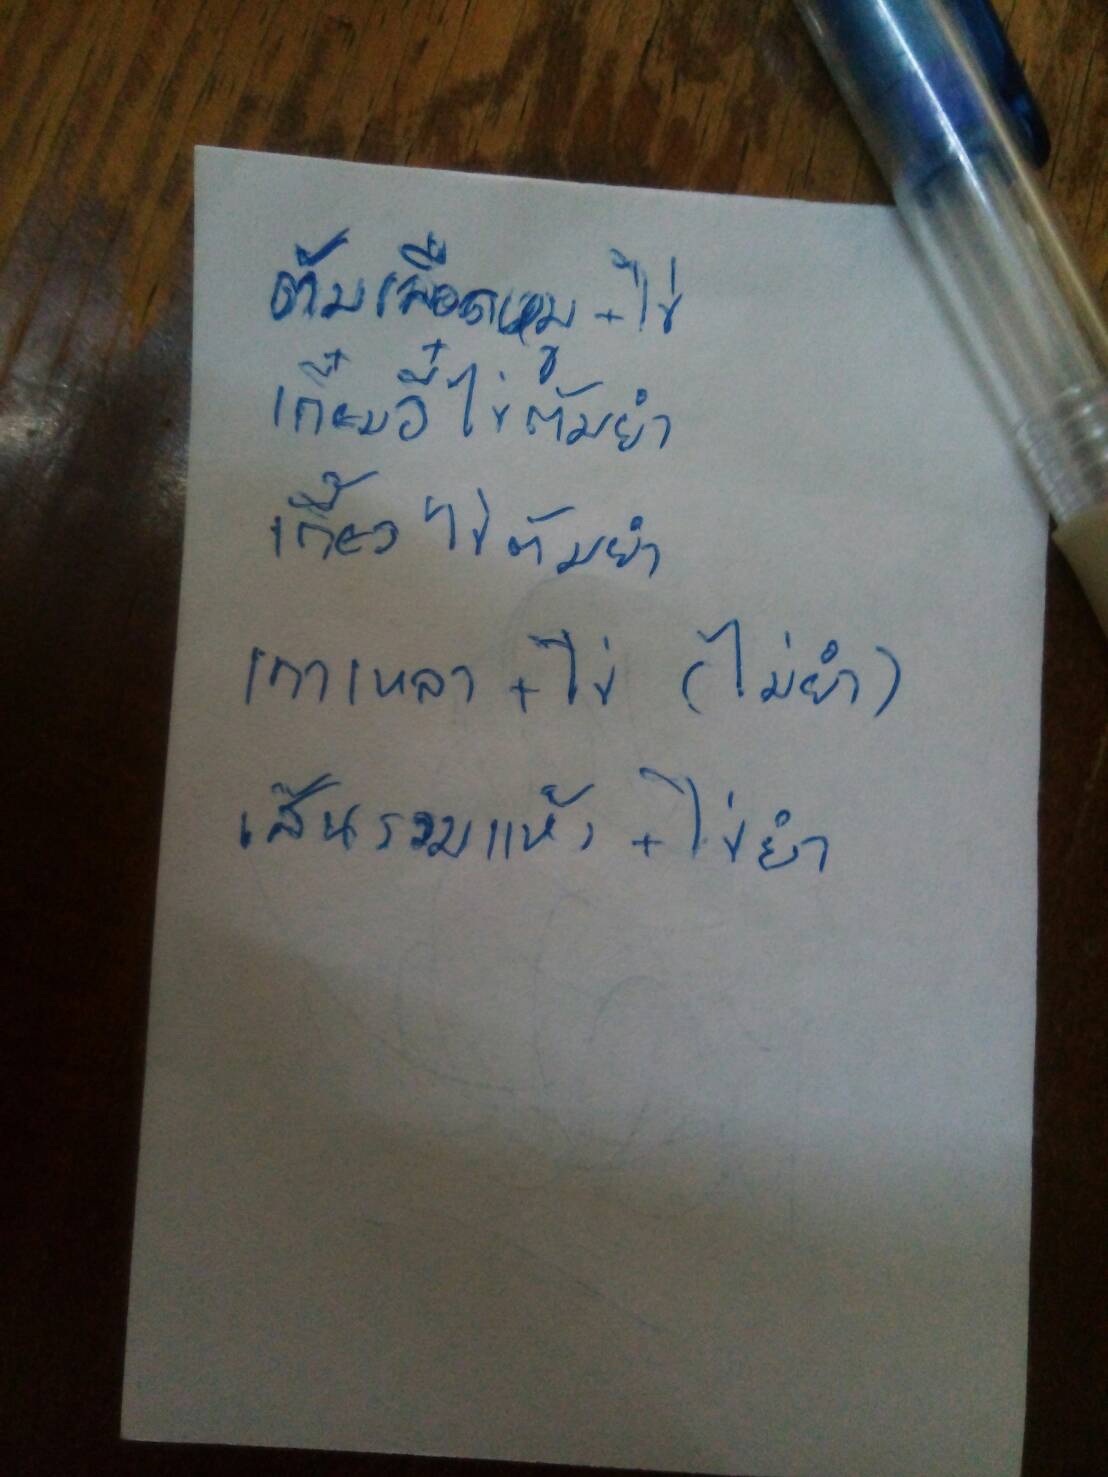 ต้มเลือดหมู + ไข่
เกี๋ยมอี๋ ไข่ต้มยำ
เกี้ยว ไข่ต้มยำ
เกาเหลา + ไข่ (ไม่ยำ)
เส้นรวมแห้ง + ไข่ยำ